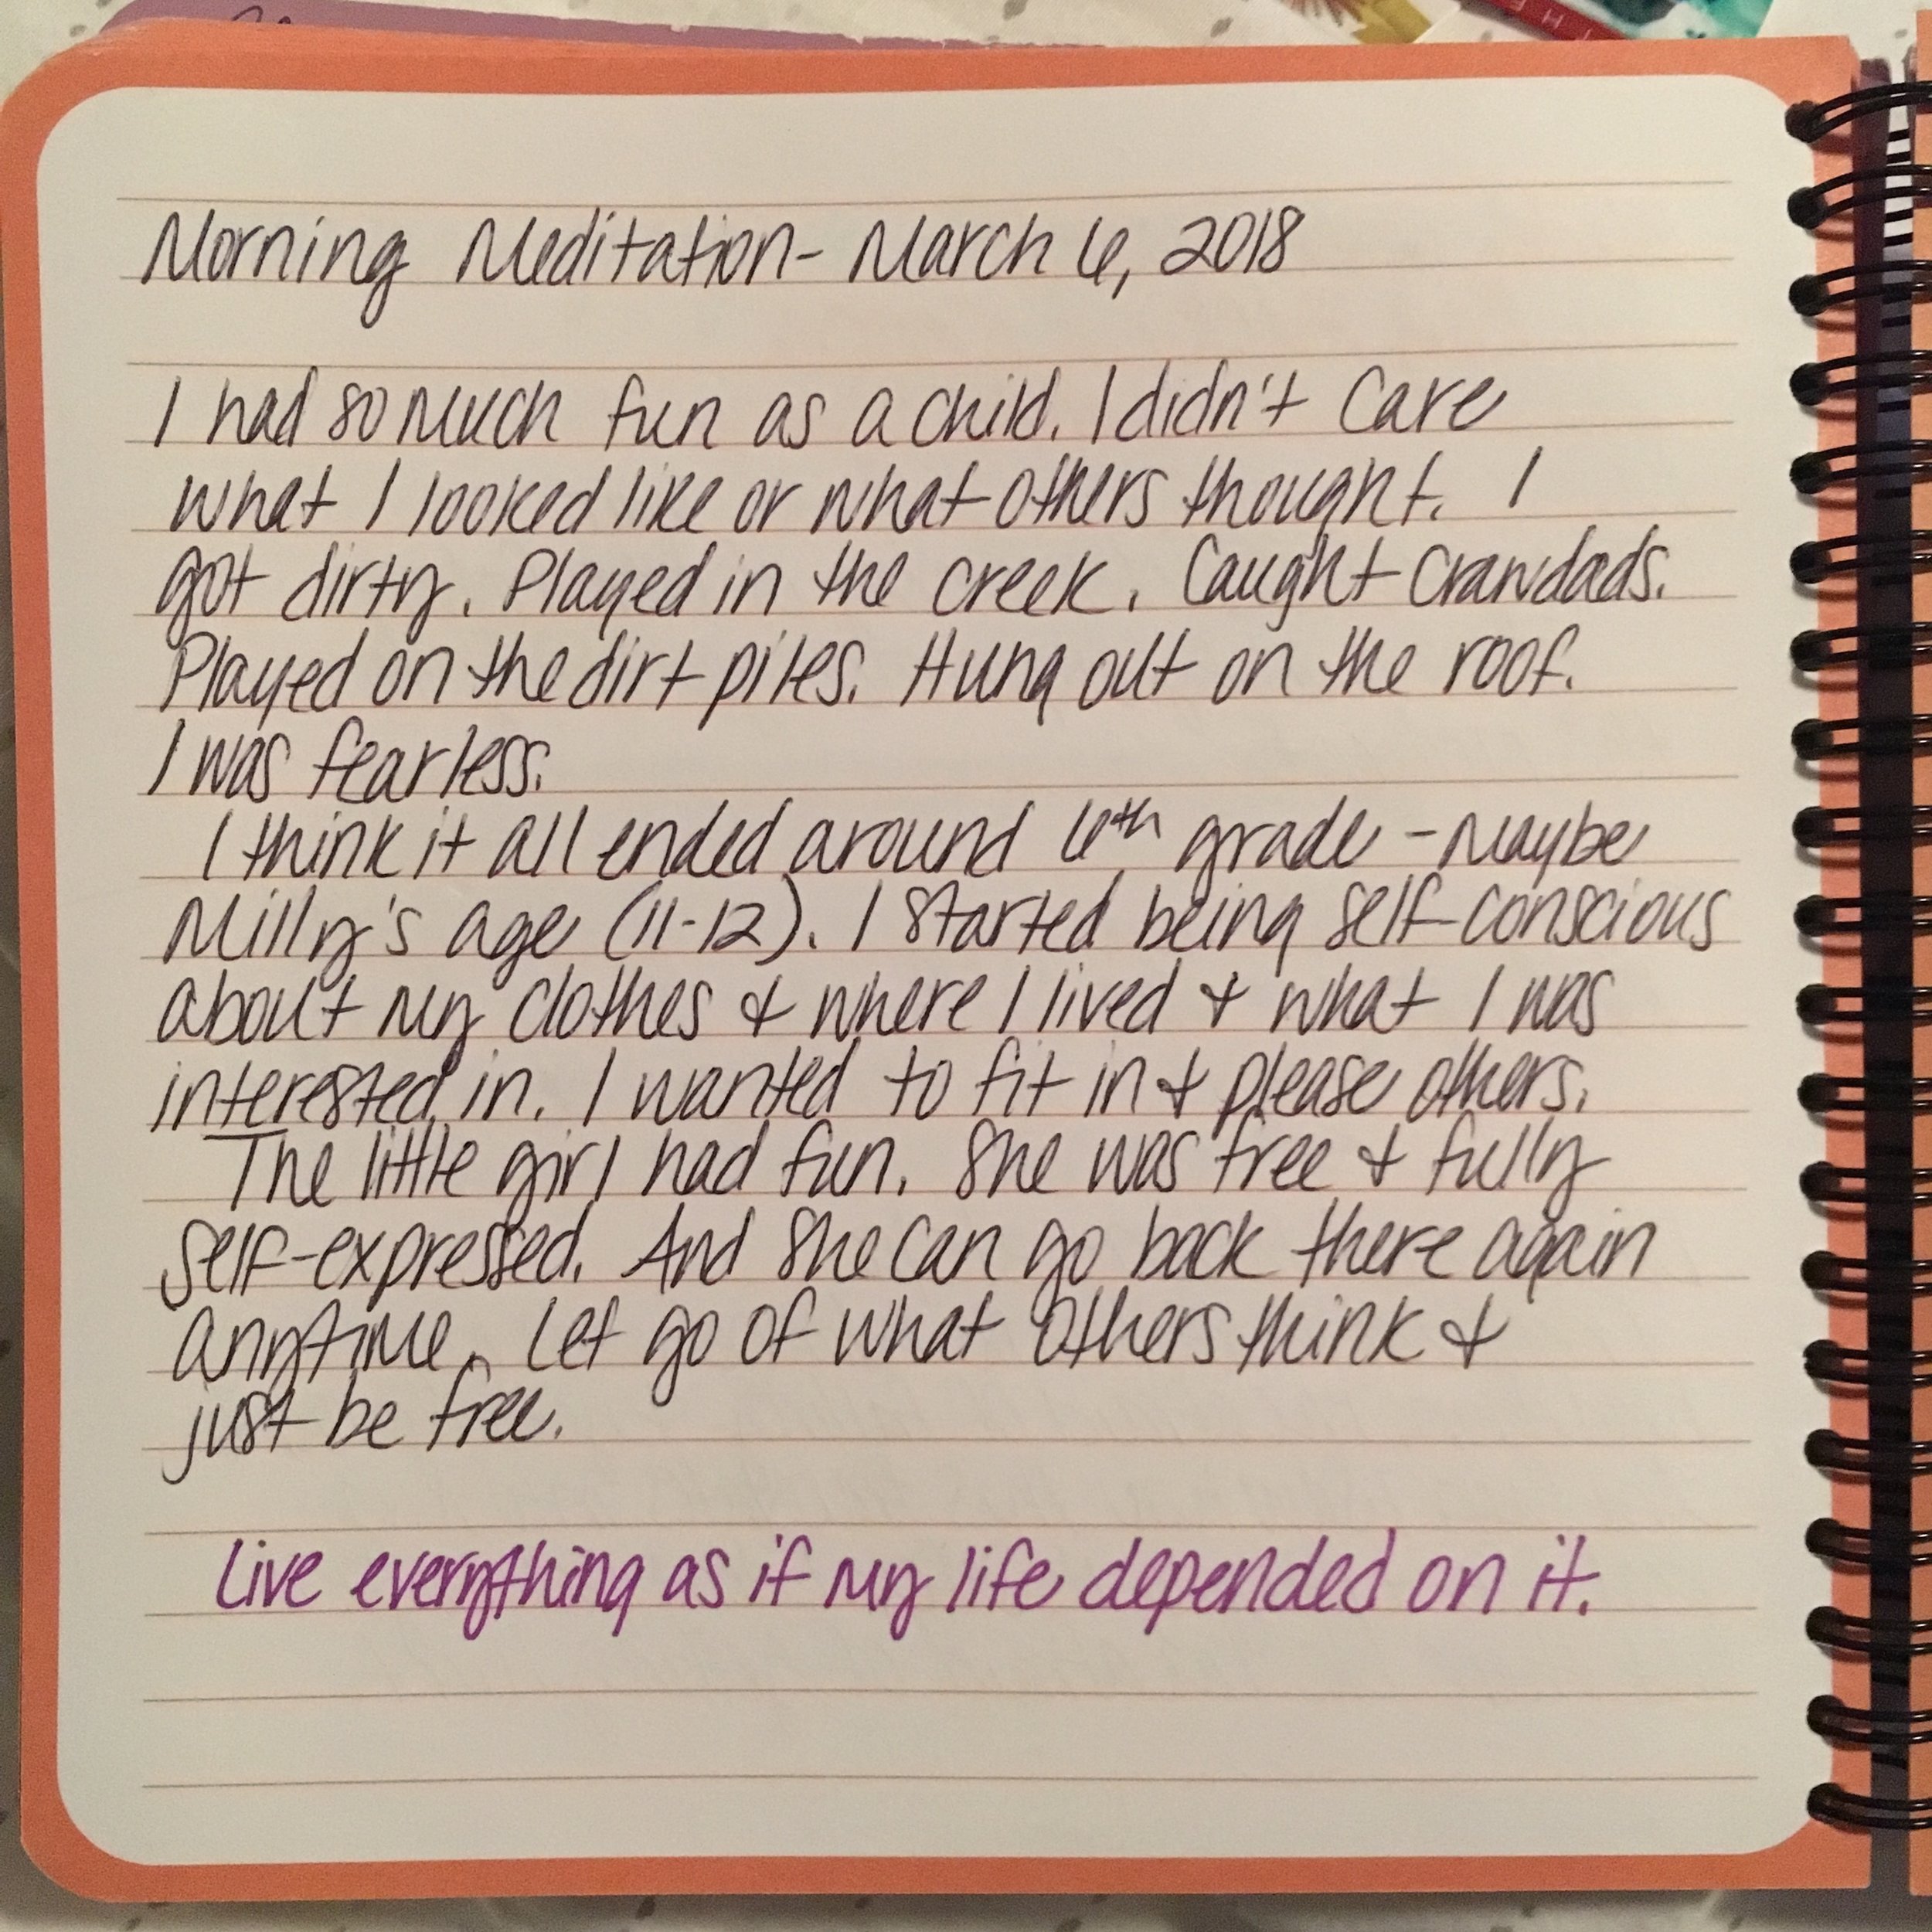 Morning Meditation- March 6, 2018
I had so much fun as a child. I didn't care
what I looked like or what others thought. I
got dirty. Played in the creek. Caught Crawdads.
Played on the dirt piles. Hung out on the roof.
I was fearless.
I think it all ended around 6th grade - Maybe
Milly's age (11-12). I started being self-conscious
about my clothes & where I lived & what I was
interested in. I wanted to fit in & please others.
The little girl had fun. She was free & fully
self-expressed. And she can go back there again
anytime. Let go of what others think &
just be free.
Live everything as if my life depended on it.